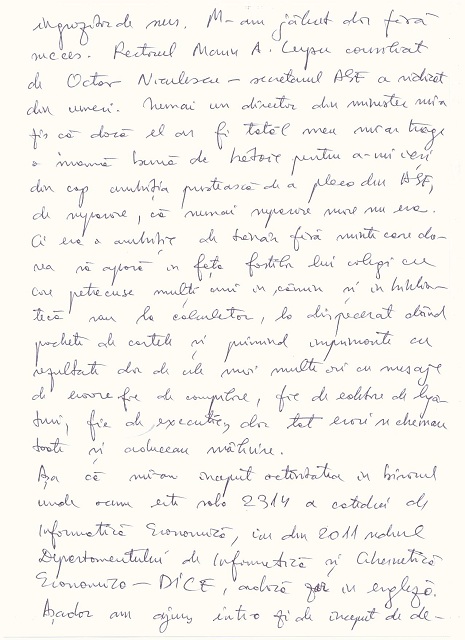 îngrozitor de sus. M-am jăluit dar fără
succes. Rectorul Manea A. Lupu consiliat
de Octav Niculescu – secretarul ASE a ridicat
din umeri. Numai un director din minister mi-a
zis că dacă el ar fi tatăl meu mi-ar trage
o mamă bună de bătaie pentru a-mi veni
din cap ambiția prostească de a pleca din ASE,
de repaore, că numai repaore nu era.
Ci era o ambiție de tânăr fără minte care do-
rea să apară în fața foștilor lui colegi cu
care petrecuse mulți ani în cămin și în biblio-
tecă sau la calculator, la dispecerat dând
pachete de cartele și primind imprimante cu
rezultate dar de cele mai multe ori cu mesaje
de eroare fie de compilare, fie de editare de legă-
turi, fie de execuție, dar tot erori se chemau
toate și aduceau mâhnire.
Așa că mi-am început activitatea în biroul
unde acum este sala 2314 a catedrei de
Informatică Economică, iar din 2011 noul
Departamentului de Informatică și Cibernetică
Economică – DICE, adică în engleză.
Așadar am ajuns într-o zi de început de de-